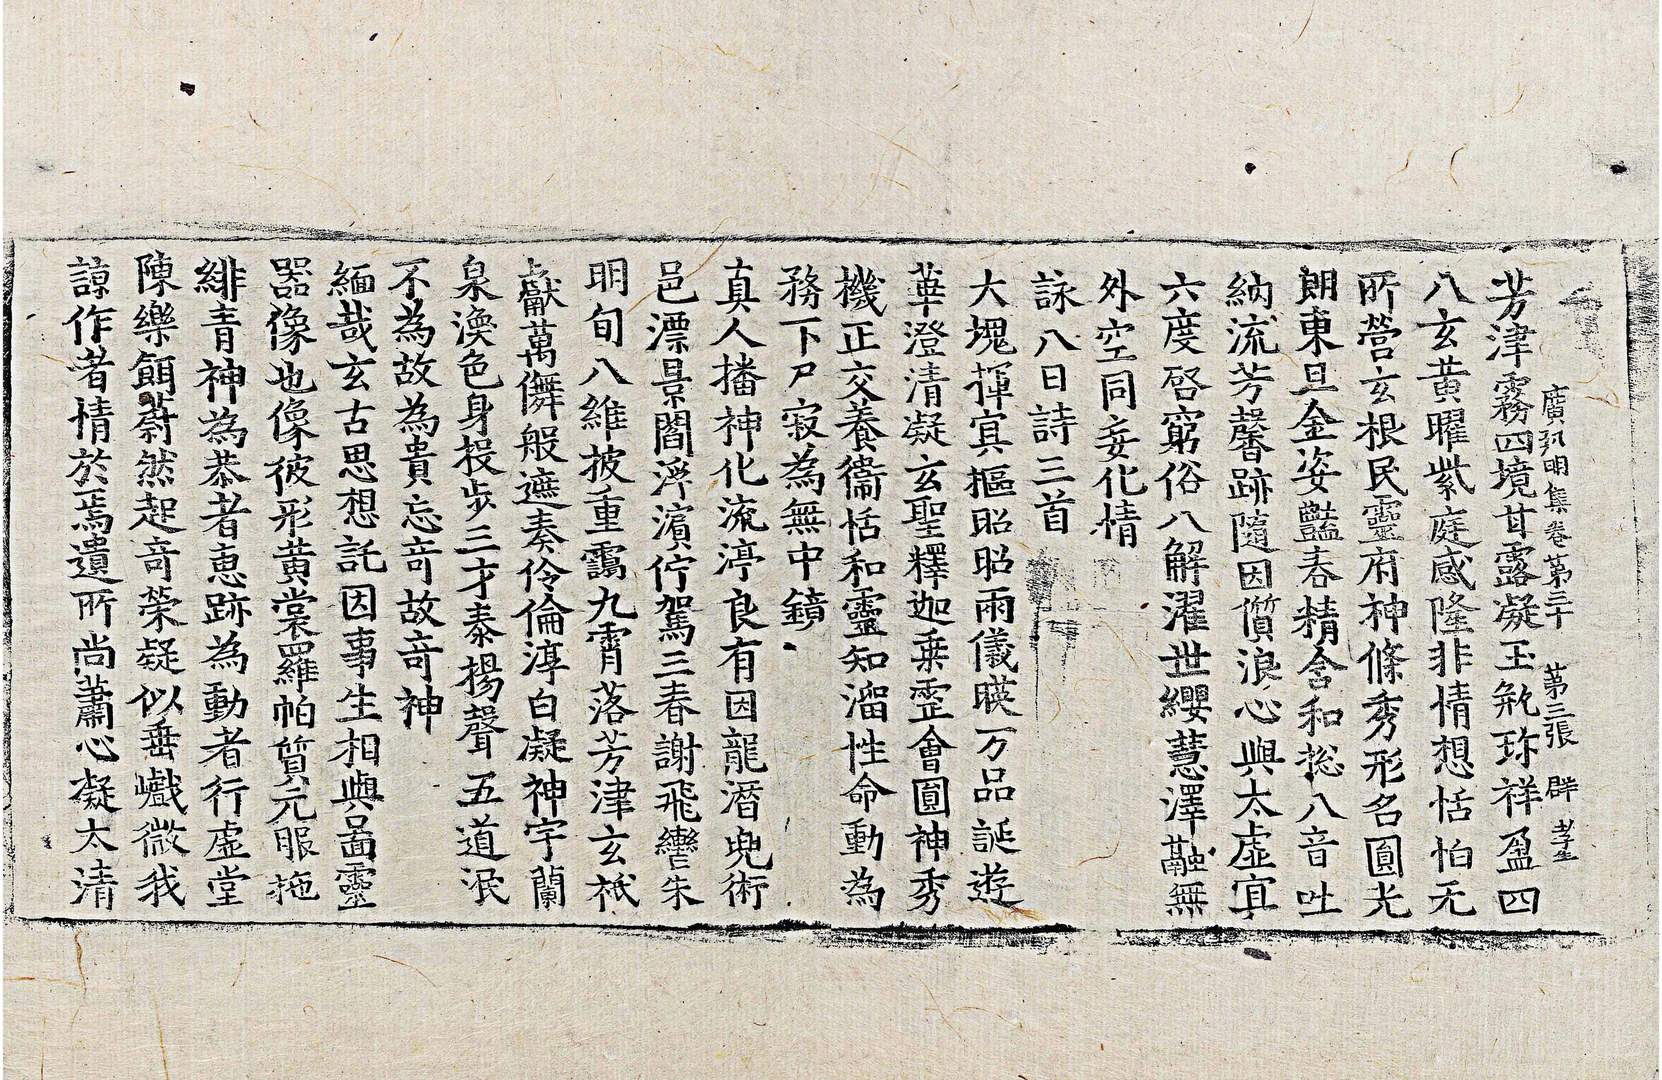 廣弘明集卷第三十　第三張　群　孝生
芳津霧四境甘露凝玉瓶珎祥盈四
八玄黃曜紫庭感隆非情想恬怕无
所營玄根民靈府神條秀形名圓光
朗東旦金姿豔春精含和惣八音吐
納流芳馨跡隨因質浪心與太虛宜
六度啓窮俗八解濯世纓慧澤融無
外空同妄化情
詠八日詩三首
大塊揮冥樞昭昭兩儀暎万品誕遊
華澄清凝玄聖釋迦乗霊會圓神秀
機正交養衞恬和靈知溜性命動為
務下尸寂為無中鏡
真人播神化流渟良有因龍潛兜術
邑漂景閻浮濱佇駕三春謝飛轡朱
明旬八維披重靄九霄落芳津玄衹
獻萬儛般遮奏伶倫淳白凝神宇蘭
泉渙色身投步三才泰揚聲五道泯
不為故為貴忘奇故奇神
緬哉玄古思想託因事生相與啚靈
器像也像彼形黃裳羅帕質元服拖
緋青神為恭者恵跡為動者行虛堂
陳樂餌蔚然起奇榮疑似垂巇微我
諒作者情於焉遺所尚蕭心凝太清